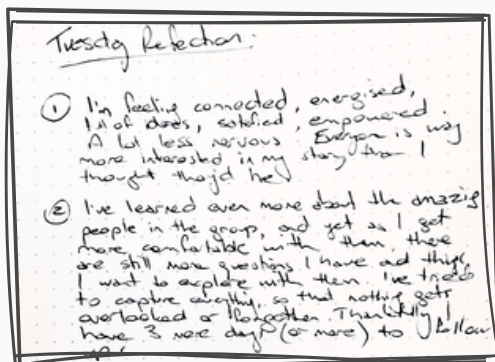 Tuesday Reflection.
① I'm feeling connected, energised,
full of ideas, satisfied, empowered
A lot less nervous Everyone is way
more interested in my story than I
thought they'd be
② I've learned even more about the amazing
people in the group, and yet as I get
more comfortable with them, there
are still more questions I have and things
I want to explore with them. I've tried
to capture everything, so that nothing gets
overlooked or forgotten Thankfully I
have 3 more days (or more) to follow
up!